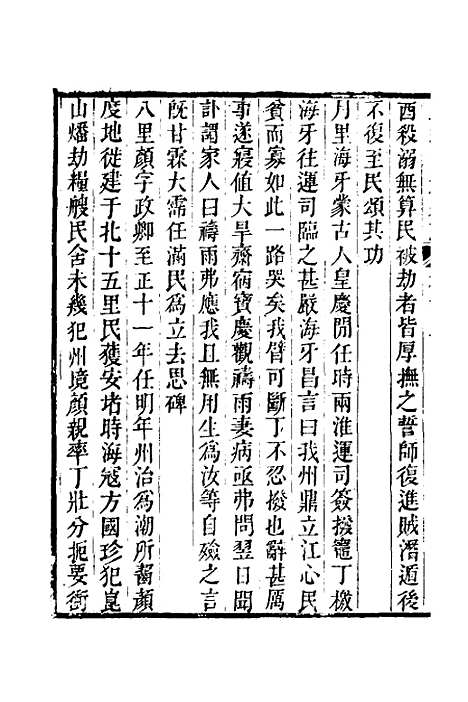 酉殺溺無算民被劫者皆厚撫之誓師復進賊潛遁後
不復至民頌其功
月里海牙蒙古人皇慶間任時兩淮運司簽撥竈丁檄
海牙往運司臨之甚嚴海牙昌言曰我州鼎立江心民
貧而寡如此一路哭矣我臂可斷丁不忍撥也辭甚厲
事遂寢值大旱齋宿寶慶觀禱雨妻病亟弗問翌日聞
訃謂家人曰禱雨弗應我且無用生為汝等自殮之言
既甘霖大霈任滿民為立去思碑
八里顏字政卿至正十一年任明年州治為潮所齧顏
度地徙建于北十五里民獲安堵時海寇方國珍犯崑
山燔劫糧艘民舍未幾犯州境顏親率丁壯分扼要衝